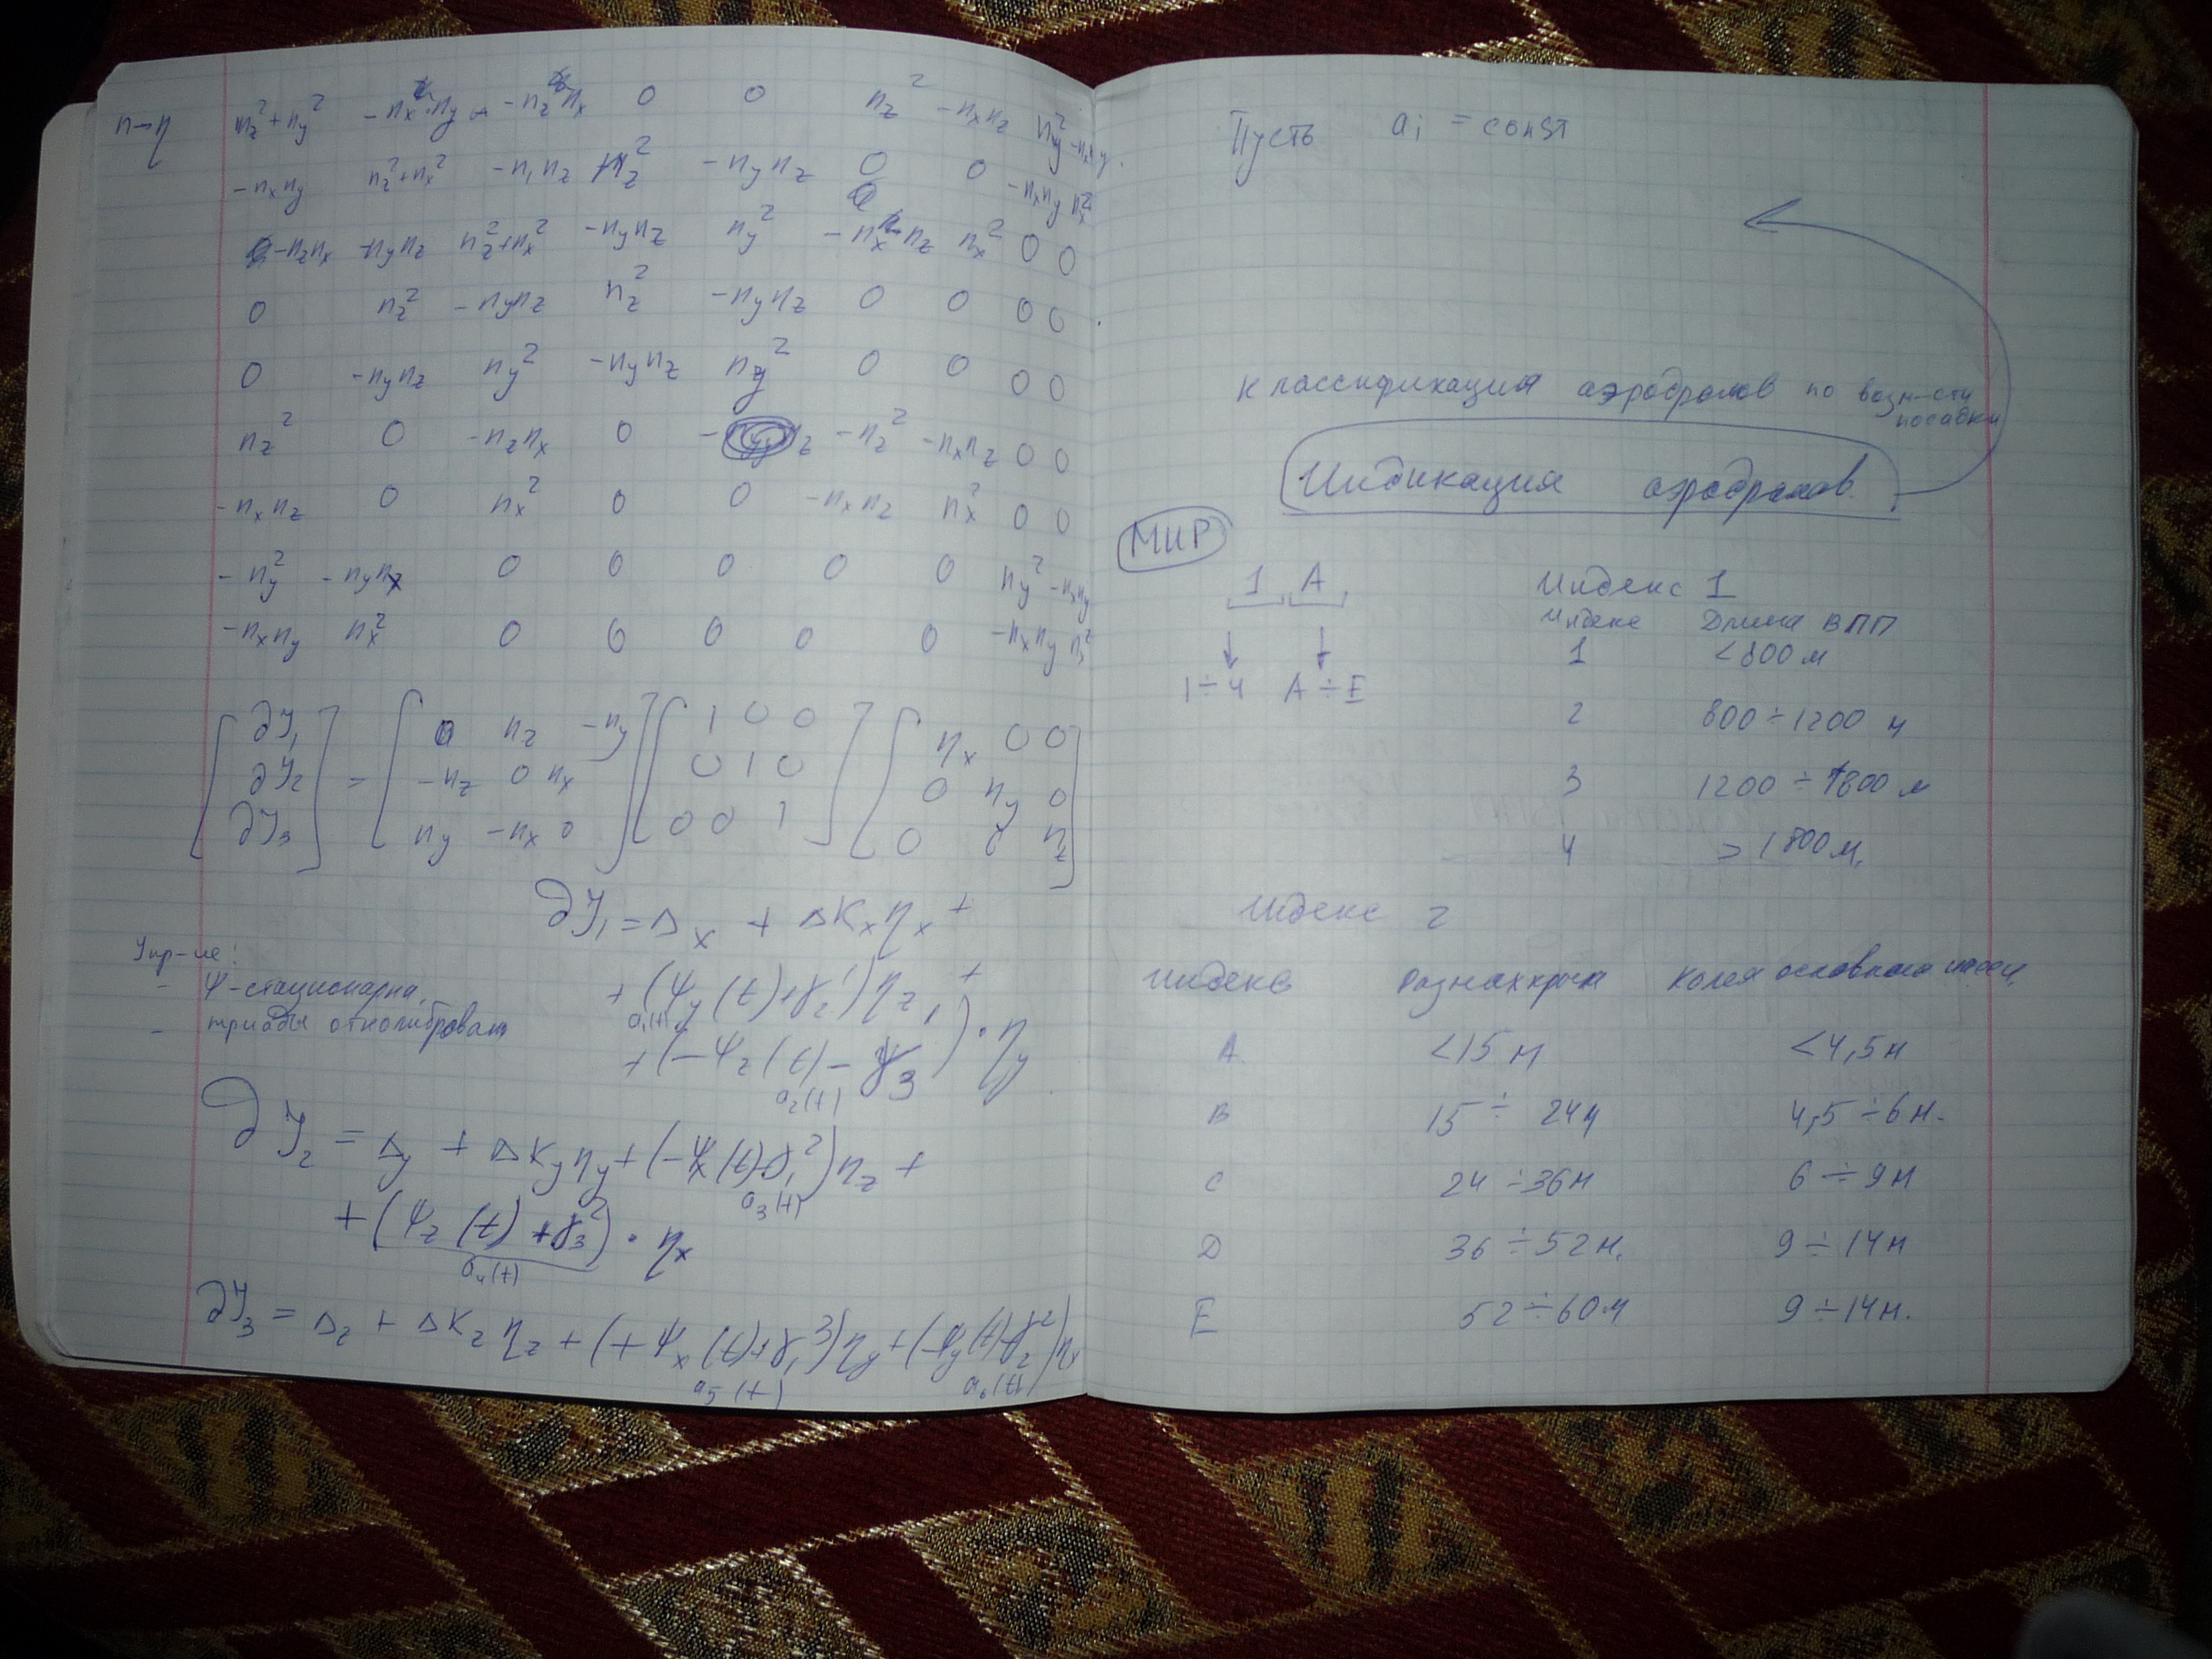 n→η
n_z²+n_y² -n_x·n_y -n_z n_x 0 0 n_z² -n_x n_z n_y² -n_x n_y
-n_x n_y n_z²+n_x² -n_1 n_z n_z² -n_y n_z 0 0 -n_x n_y n_x²
-n_z n_x -n_y n_z n_z²+n_x² -n_y n_z n_y² -n_x n_z n_x² 0 0
0 n_z² -n_y n_z n_z² -n_y n_z 0 0 0 0
0 -n_y n_z n_y² -n_y n_z n_y² 0 0 0 0
n_z² 0 -n_z n_x 0 -n_z² -n_x n_z 0 0
-n_x n_z 0 n_x² 0 0 -n_x n_z n_x² 0 0
-n_y² -n_y n_x 0 0 0 0 0 n_y² -n_x n_y
-n_x n_y n_x² 0 0 0 0 0 -n_x n_y n_x²
[∂Y₁ ∂Y₂ ∂Y₃] = [0 n_z -n_y
-n_z 0 n_x
n_y -n_x 0] [1 0 0
0 1 0
0 0 1] [η_x 0 0
0 η_y 0
0 0 η_z]
∂Y₁ = Δ_x + ΔK_x η_x +
+ (Ψ_y(t)+γ₂¹)η_z +
a₁(t)
+ (-Ψ_z(t) - γ₃¹)·η_y
a₂(t)
Упр-ие:
- Ψ-стационарна,
- триады откалиброван
∂Y₂ = Δ_y + ΔK_y η_y + (-Ψ_x(t)-γ₁²)η_z +
a₃(t)
+ (Ψ_z(t) + γ₃²)·η_x
a₄(t)
∂Y₃ = Δ_z + ΔK_z η_z + (+Ψ_x(t)+γ₁³)η_y + (-Ψ_y(t)-γ₂³)η_x
a₅(t) a₆(t)
Пусть a_i = const
Классификация аэродромов по возм-сти
посадки
Индикация аэродромов.
МИР
1 А
1÷4 А÷Е
Индекс 1
Индекс Длина ВПП
1 <800 м
2 800÷1200 м
3 1200÷1800 м
4 >1800 м.
Индекс 2
Индекс Размах крыла Колея основного шасси
A <15 м <4,5 м
B 15÷24 м 4,5÷6 м.
C 24÷36 м 6÷9 м
D 36÷52 м. 9÷14 м
E 52÷60 м 9÷14 м.